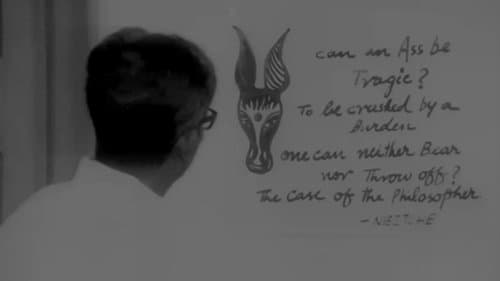 can an Ass be
Tragic?
To be crushed by a
Burden
one can neither Bear
nor Throw off?
The case of the Philosopher.
- NEITCHE